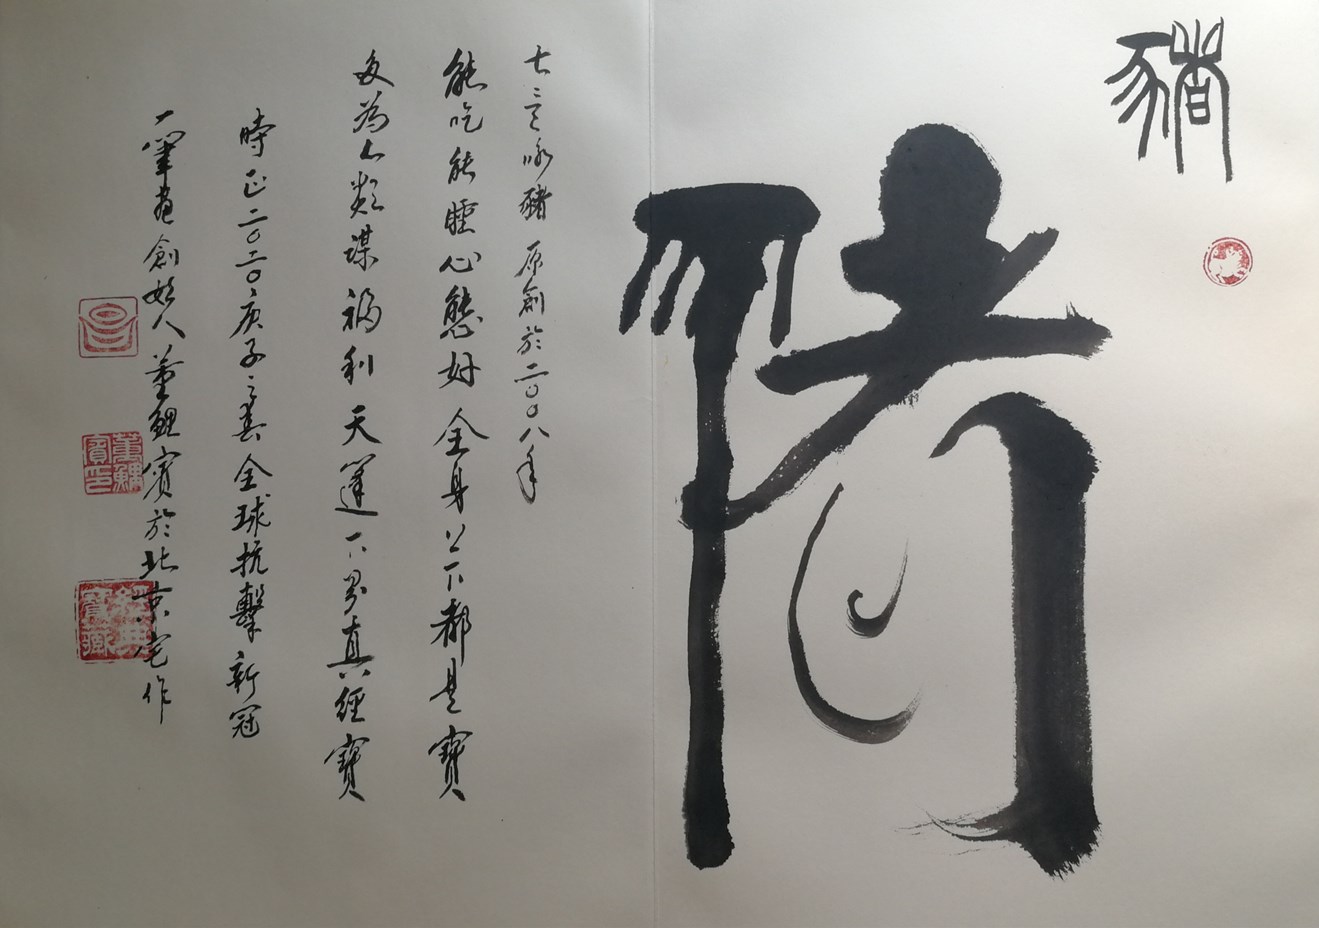 豬
七言咏豬 原創於二〇〇八年
能吃能睡心態好 全身上下都是寶
更為人類謀福利 天蓬下界真經寶
時正二〇二〇庚子之春全球抗擊新冠
一筆畫創始人董鯉賓於北京宅作
董鯉賓印